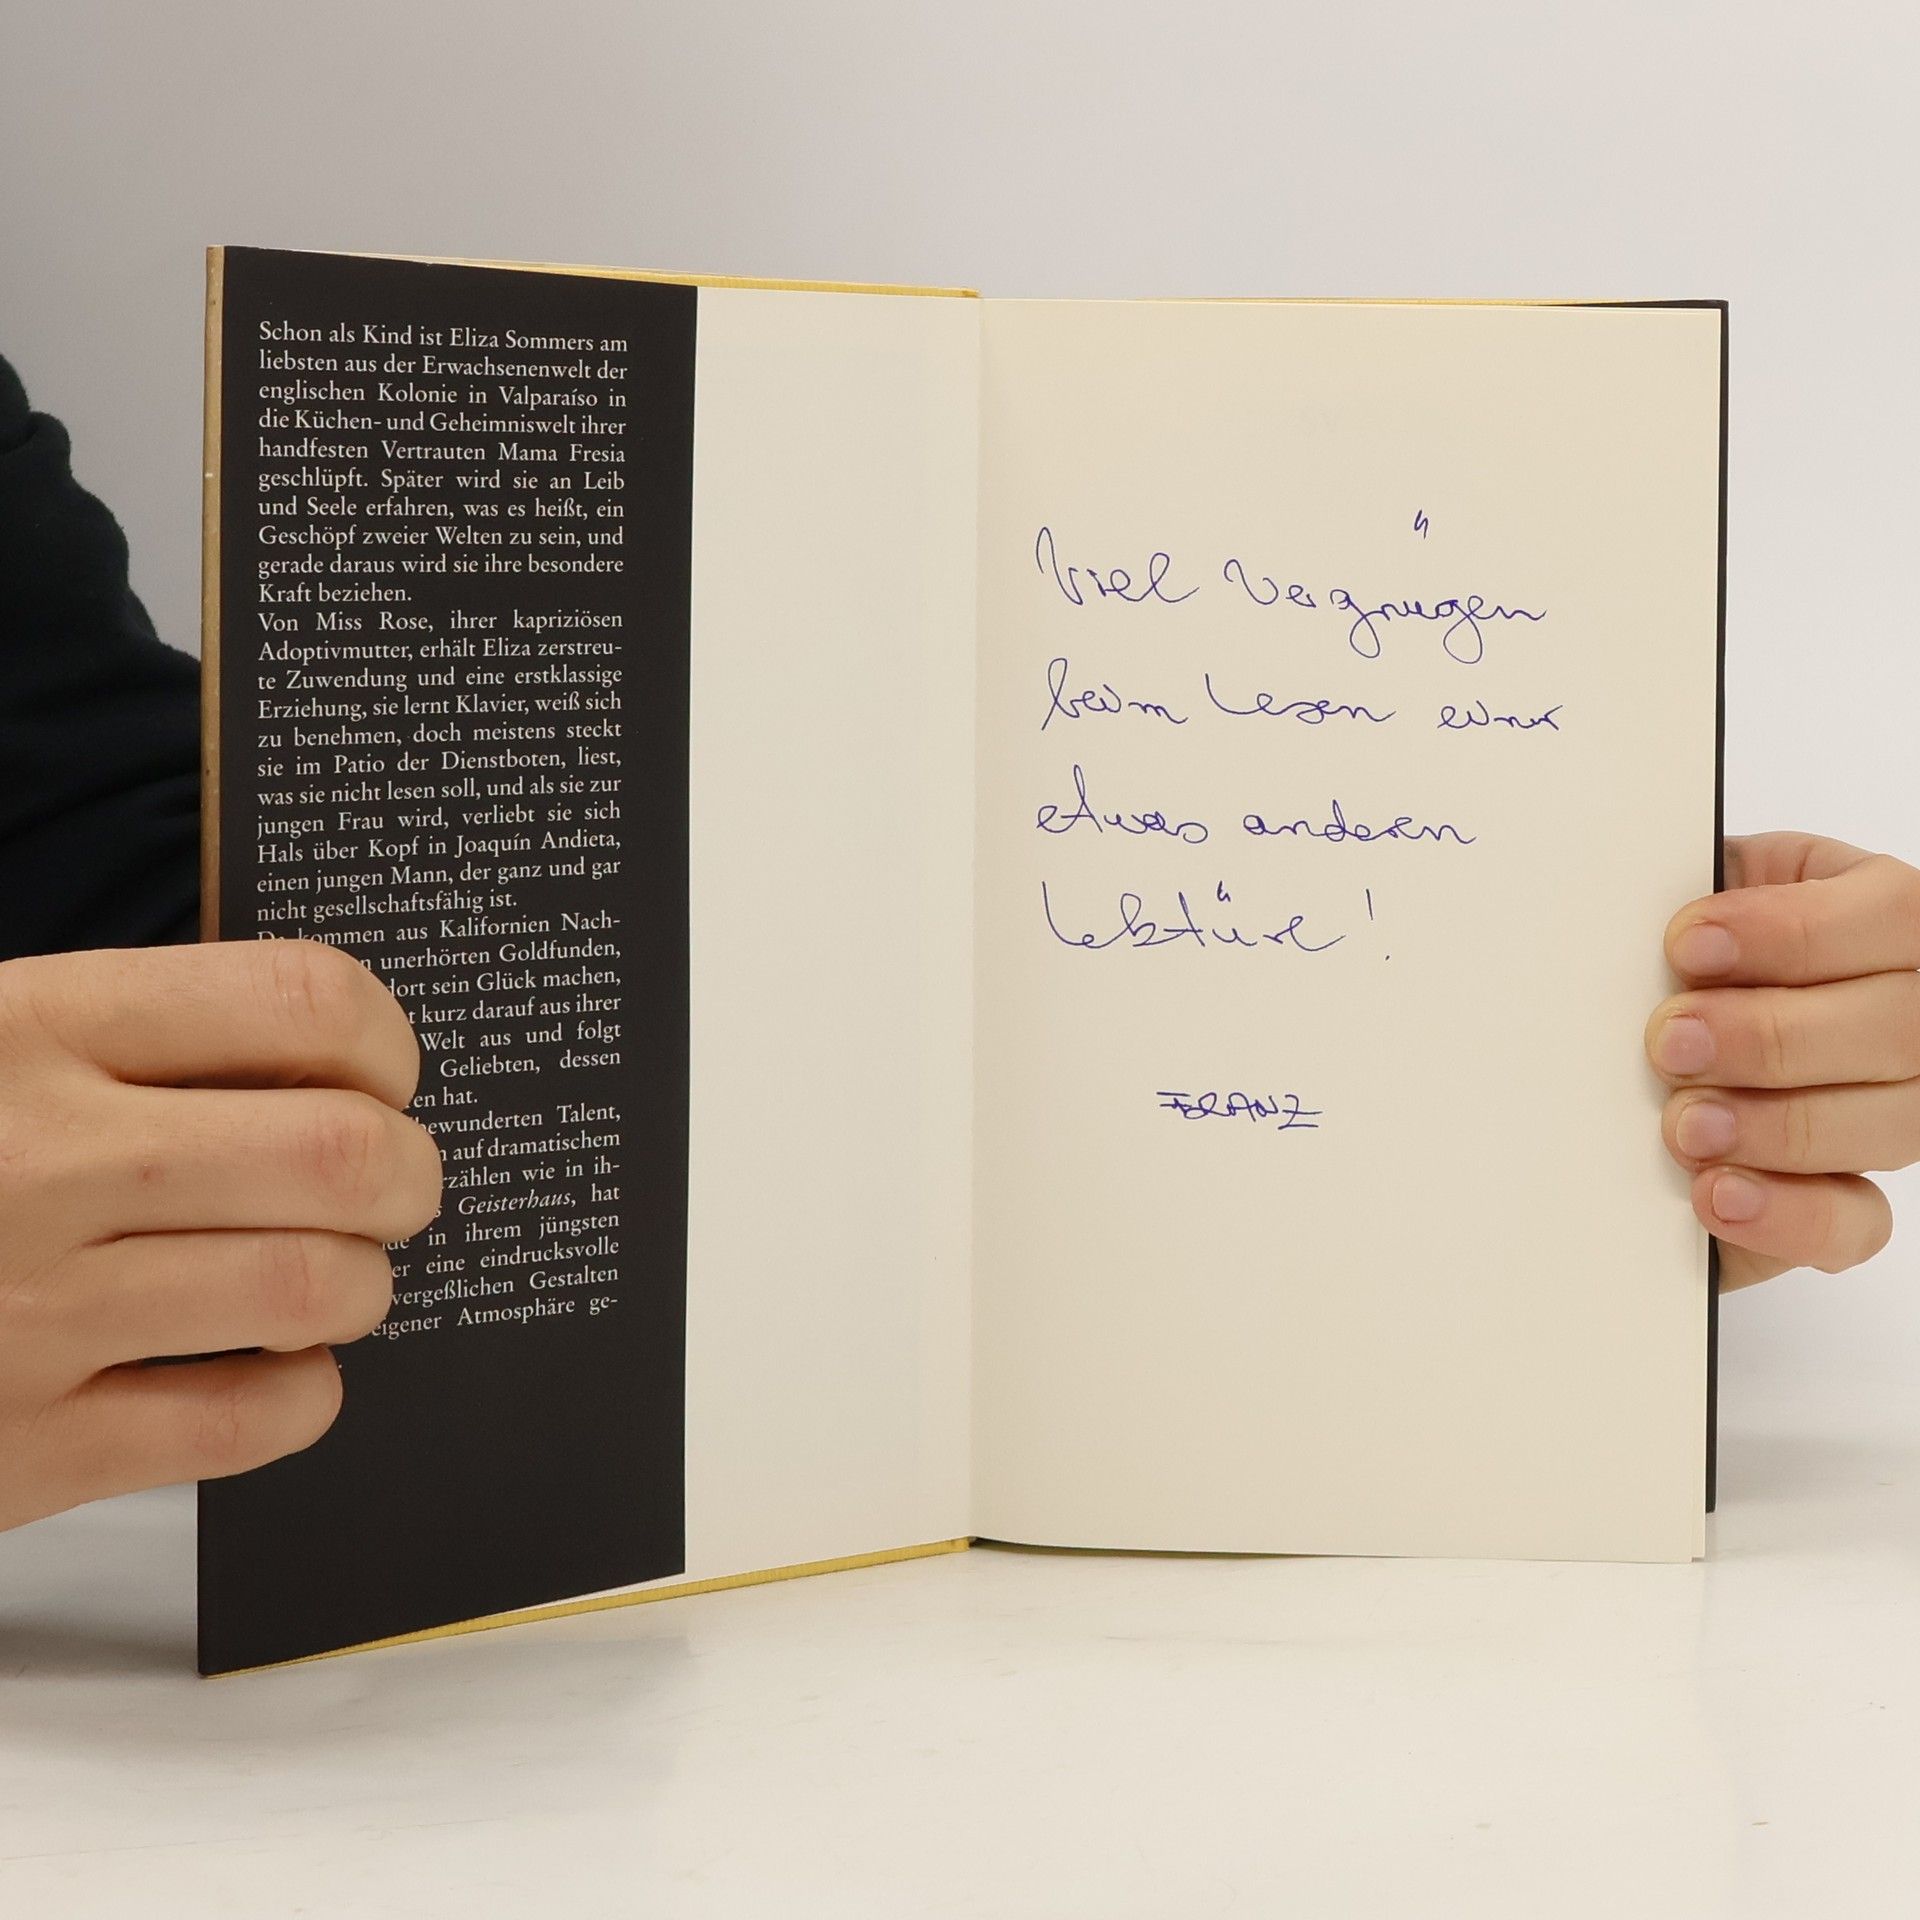 Schon als Kind ist Eliza Sommers am
liebsten aus der Erwachsenenwelt der
englischen Kolonie in Valparaíso in
die Küchen- und Geheimniswelt ihrer
handfesten Vertrauten Mama Fresia
geschlüpft. Später wird sie an Leib
und Seele erfahren, was es heißt, ein
Geschöpf zweier Welten zu sein, und
gerade daraus wird sie ihre besondere
Kraft beziehen.
Von Miss Rose, ihrer kapriziösen
Adoptivmutter, erhält Eliza zerstreu-
te Zuwendung und eine erstklassige
Erziehung, sie lernt Klavier, weiß sich
zu benehmen, doch meistens steckt
sie im Patio der Dienstboten, liest,
was sie nicht lesen soll, und als sie zur
jungen Frau wird, verliebt sie sich
Hals über Kopf in Joaquín Andieta,
einen jungen Mann, der ganz und gar
nicht gesellschaftsfähig ist.
kommen aus Kalifornien Nach-
unerhörten Goldfunden,
dort sein Glück machen,
kurz darauf aus ihrer
Welt aus und folgt
Geliebten, dessen
hat.
bewunderten Talent,
auf dramatischem
wie in ih-
Geisterhaus, hat
in ihrem jüngsten
eine eindrucksvolle
Gestalten
Atmosphäre ge-
Viel Vergnügen
beim Lesen einer
etwas anderen
Lektüre!
FRANZ